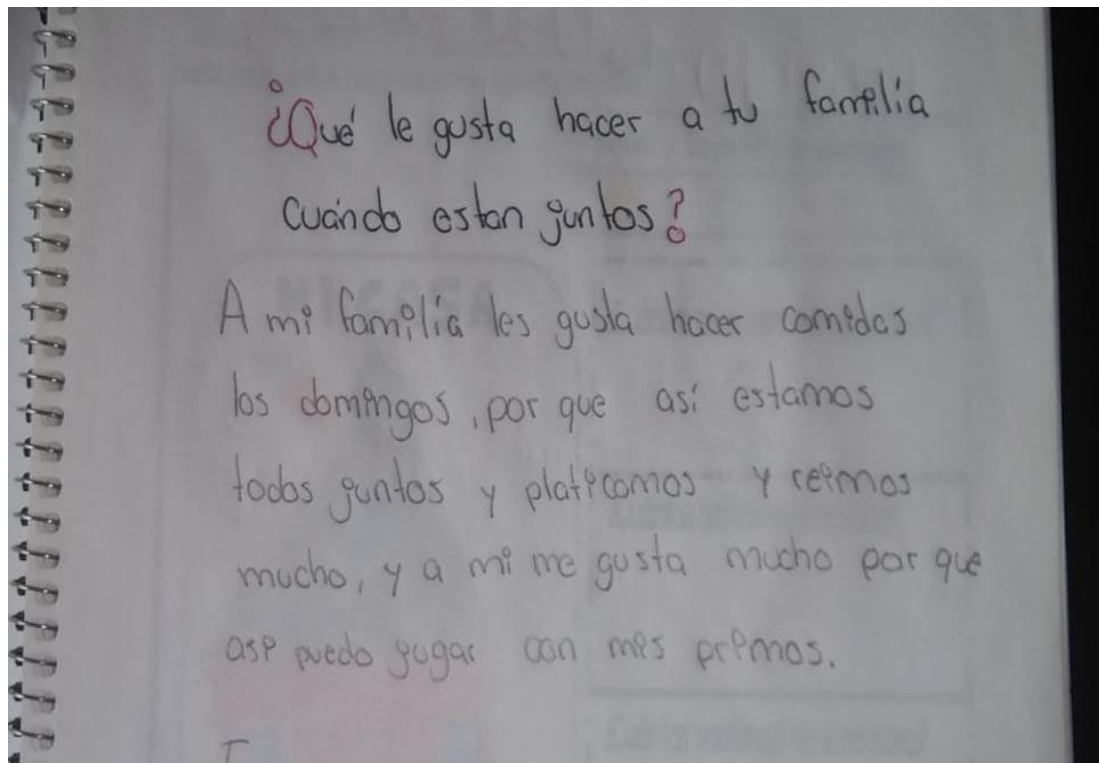 ¿Qué le gusta hacer a tu familia
cuándo estan juntos?
A mi familia les gusta hacer comidas
los domingos, por que así estamos
todos juntos y platicamos y reimos
mucho, y a mi me gusta mucho por que
asi puedo jugar con mis primos.